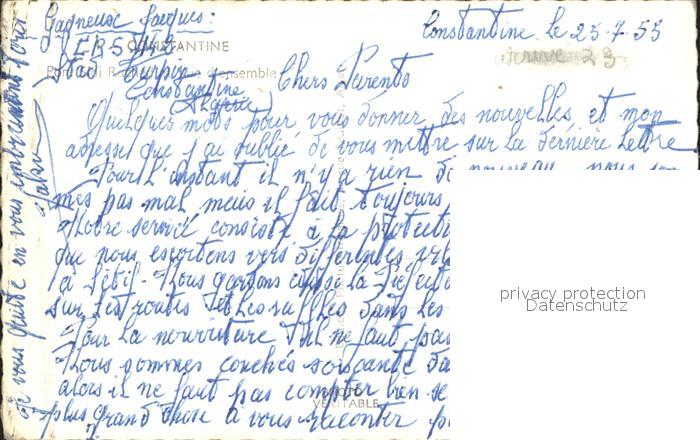 Gagneuse Jacques :
ERS
CONSTANTINE
d'ensemble
Stad Turpin
Constantine
Algérie
Constantine le 23-7-55
arrivé 23
Chers Parents
Quelques mots pour vous donner des nouvelles et mon
adresse que j'ai oublié de vous mettre sur la dernière lettre
Pour l'instant il n'y a rien de nouveau nous
mes pas mal mais il fait toujours
Notre service consiste à la protecti
que nous escortons vers différentes
à Sétif - Nous gardons aussi la Préfect
sur les routes et les dans les
Pour la nourriture il ne faut pas
Nous sommes couchés soixante da
alors il ne faut pas compter bon se
plus grand chose à vous raconter p
Je vous quitte en vous embrassant
VÉRITABLE
privacy protection
Datenschutz